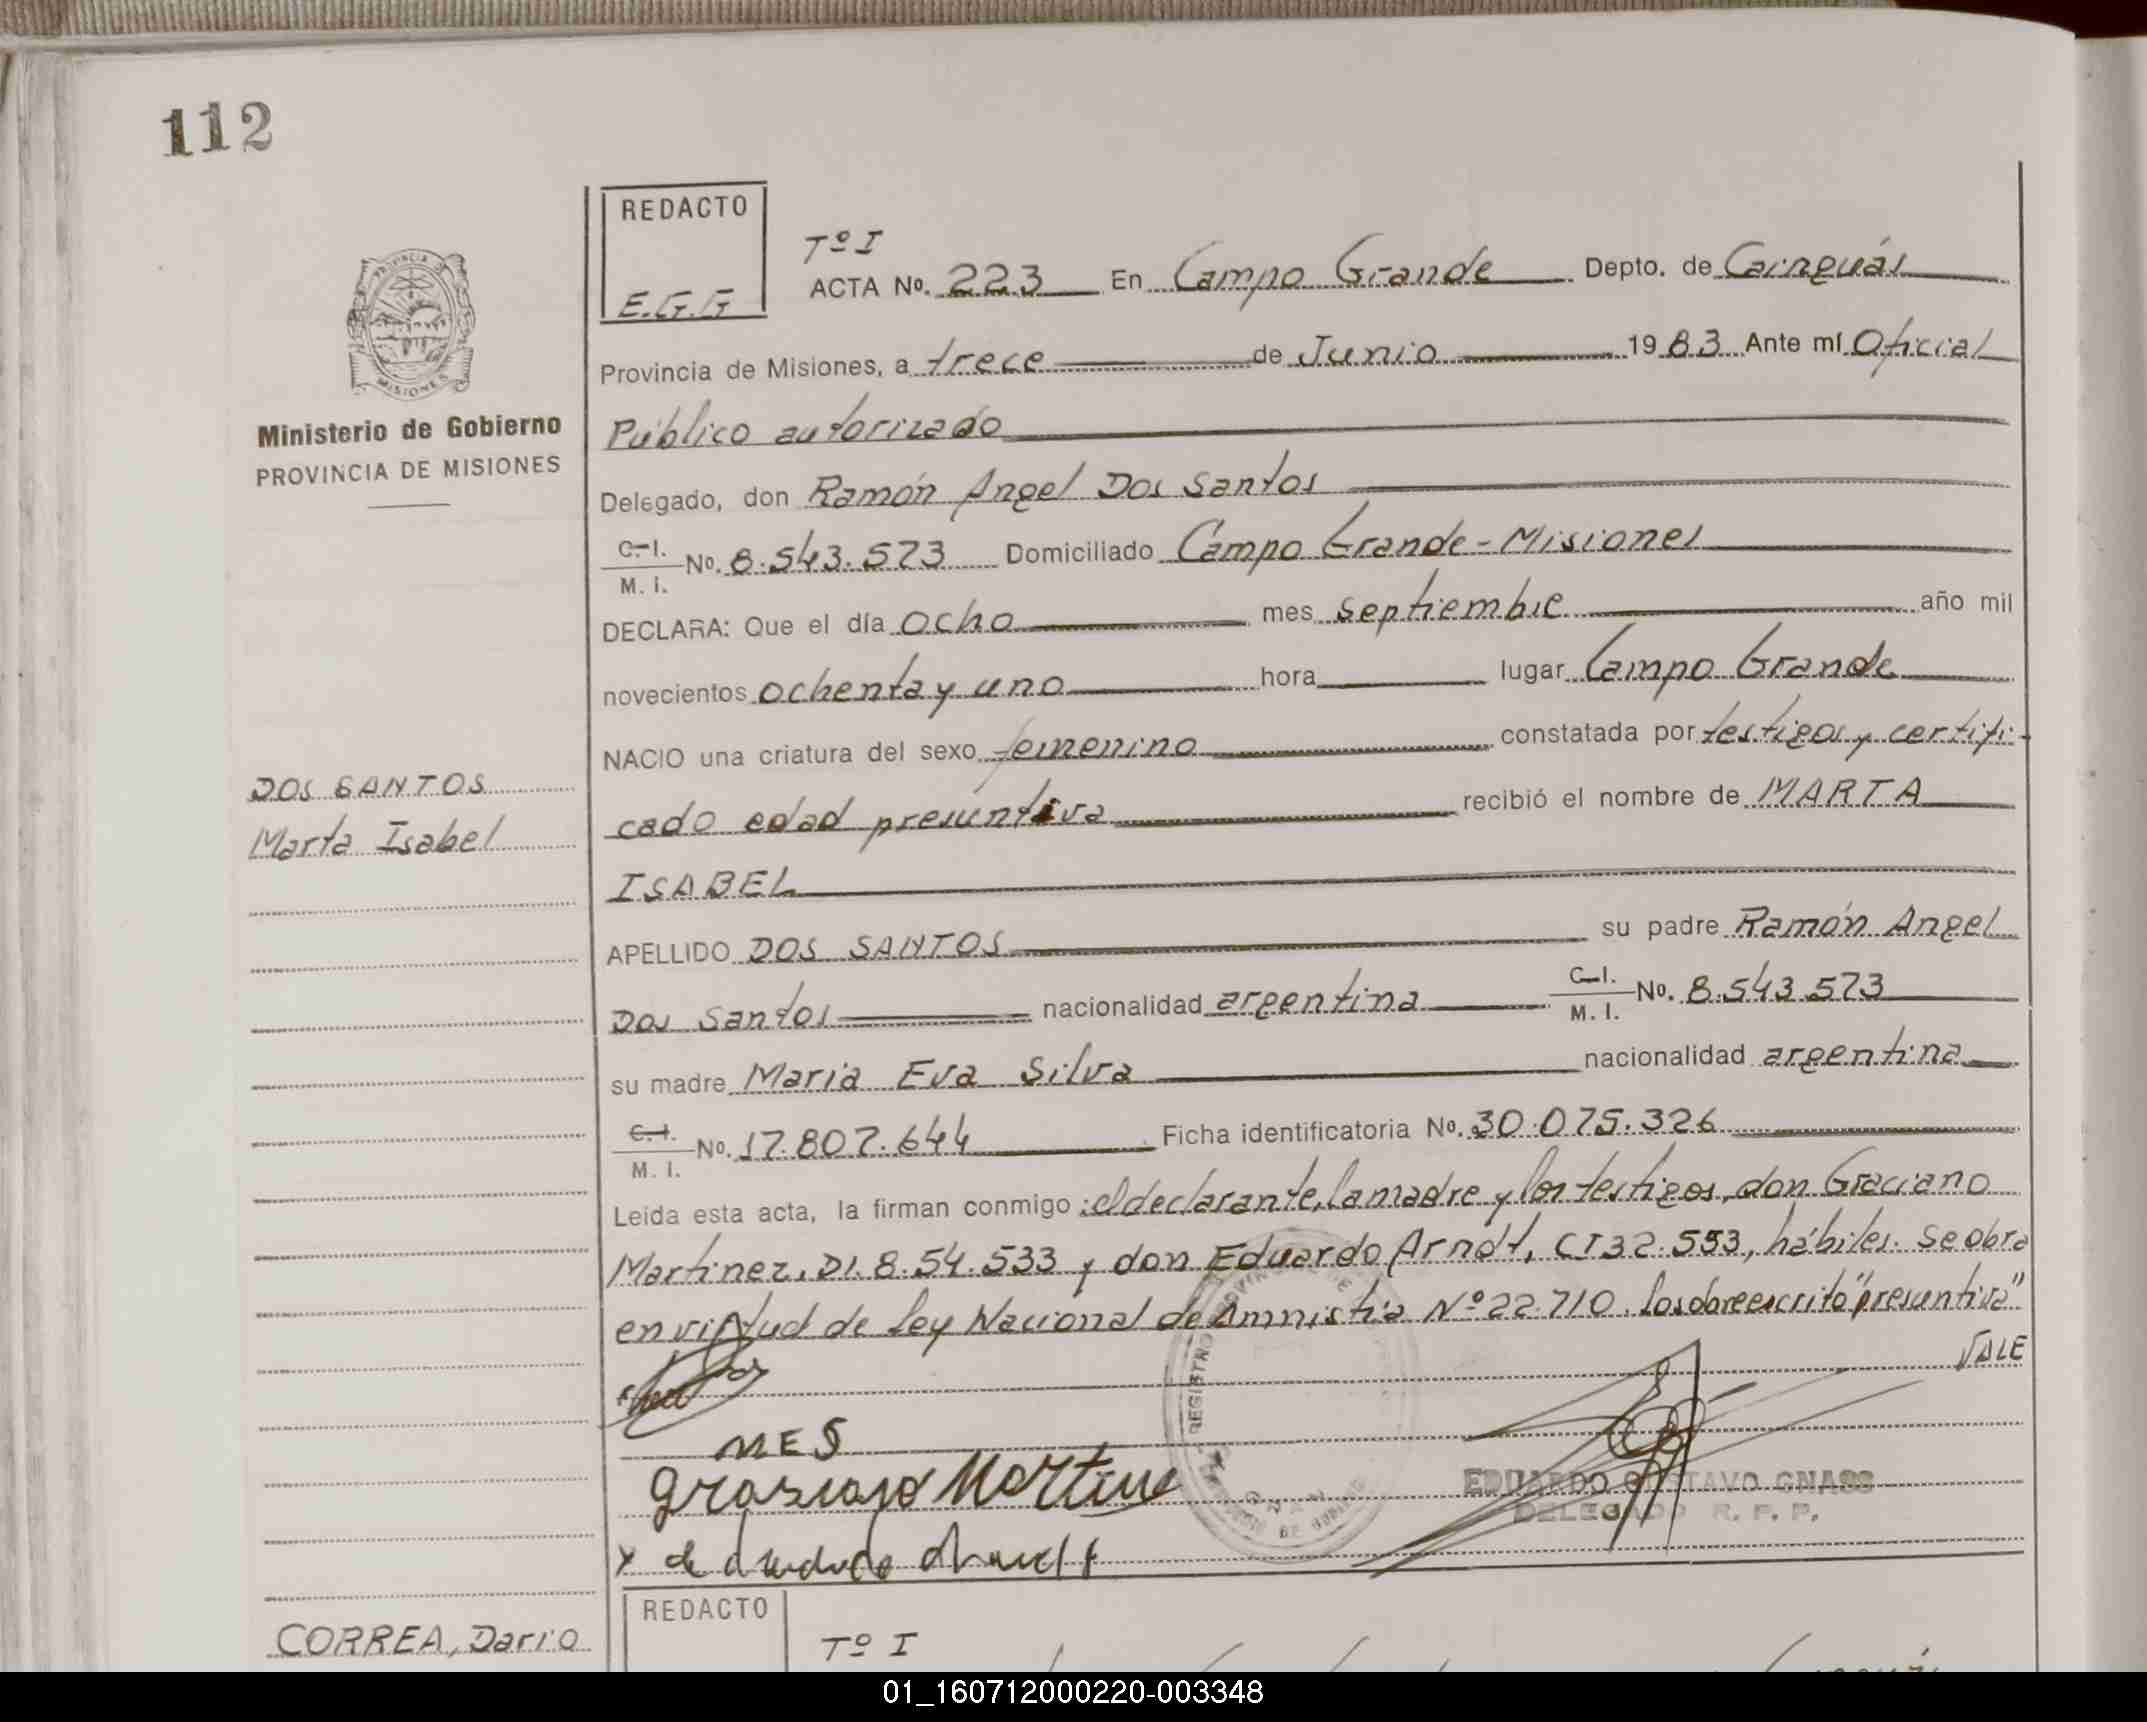 112
REDACTO
E.G.G
Tº I
ACTA No. 223 En Campo Grande Depto. de Cainguás
Provincia de Misiones, a trece de Junio 1983 Ante mí Oficial
Público autorizado
Ministerio de Gobierno
PROVINCIA DE MISIONES
Delegado, don Ramón Angel Dos Santos
C.I.
M. I. No. 8.543.573 Domiciliado Campo Grande - Misiones
DECLARA: Que el día ocho mes septiembre año mil
novecientos ochenta y uno hora lugar Campo Grande
NACIO una criatura del sexo femenino constatada por testigos y certifi-
cado edad presuntiva recibió el nombre de MARTA
ISABEL
DOS SANTOS
Marta Isabel
APELLIDO DOS SANTOS su padre Ramón Angel
Dos Santos nacionalidad argentina C.I. M. I. No. 8.543.573
su madre Maria Eva Silva nacionalidad argentina
C.I. M. I. No. 17.807.644 Ficha identificatoria No. 30.075.326
Leida esta acta, la firman conmigo: el declarante, la madre y los testigos, don Graciano
Martinez, DI. 8.54.533 y don Eduardo Arndt, CI 32.553, hábiles. Se obra
en virtud de Ley Nacional de Amnistía Nº 22.710. Lo sobreescrito "presuntiva"
VALE
MES
EDUARDO GUSTAVO GNASS
DELEGADO R. P. P.
REDACTO
Tº I
CORREA, Dario
01_160712000220-003348